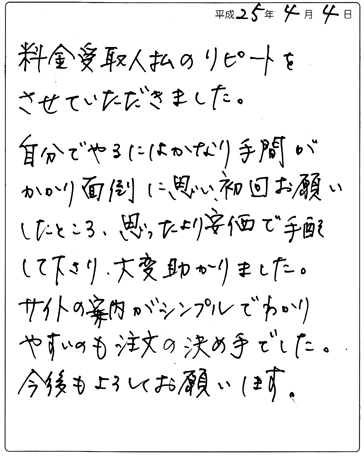 平成25年4月4日
料金受取人払のリピートを
させていただきました。
自分でやるにはかなり手間が
かかり面倒に思い、初回お願い
したところ、思ったより安価で手配
して下さり、大変助かりました。
サイトの案内がシンプルでわかり
やすいのも注文の決め手でした。
今後もよろしくお願いします。